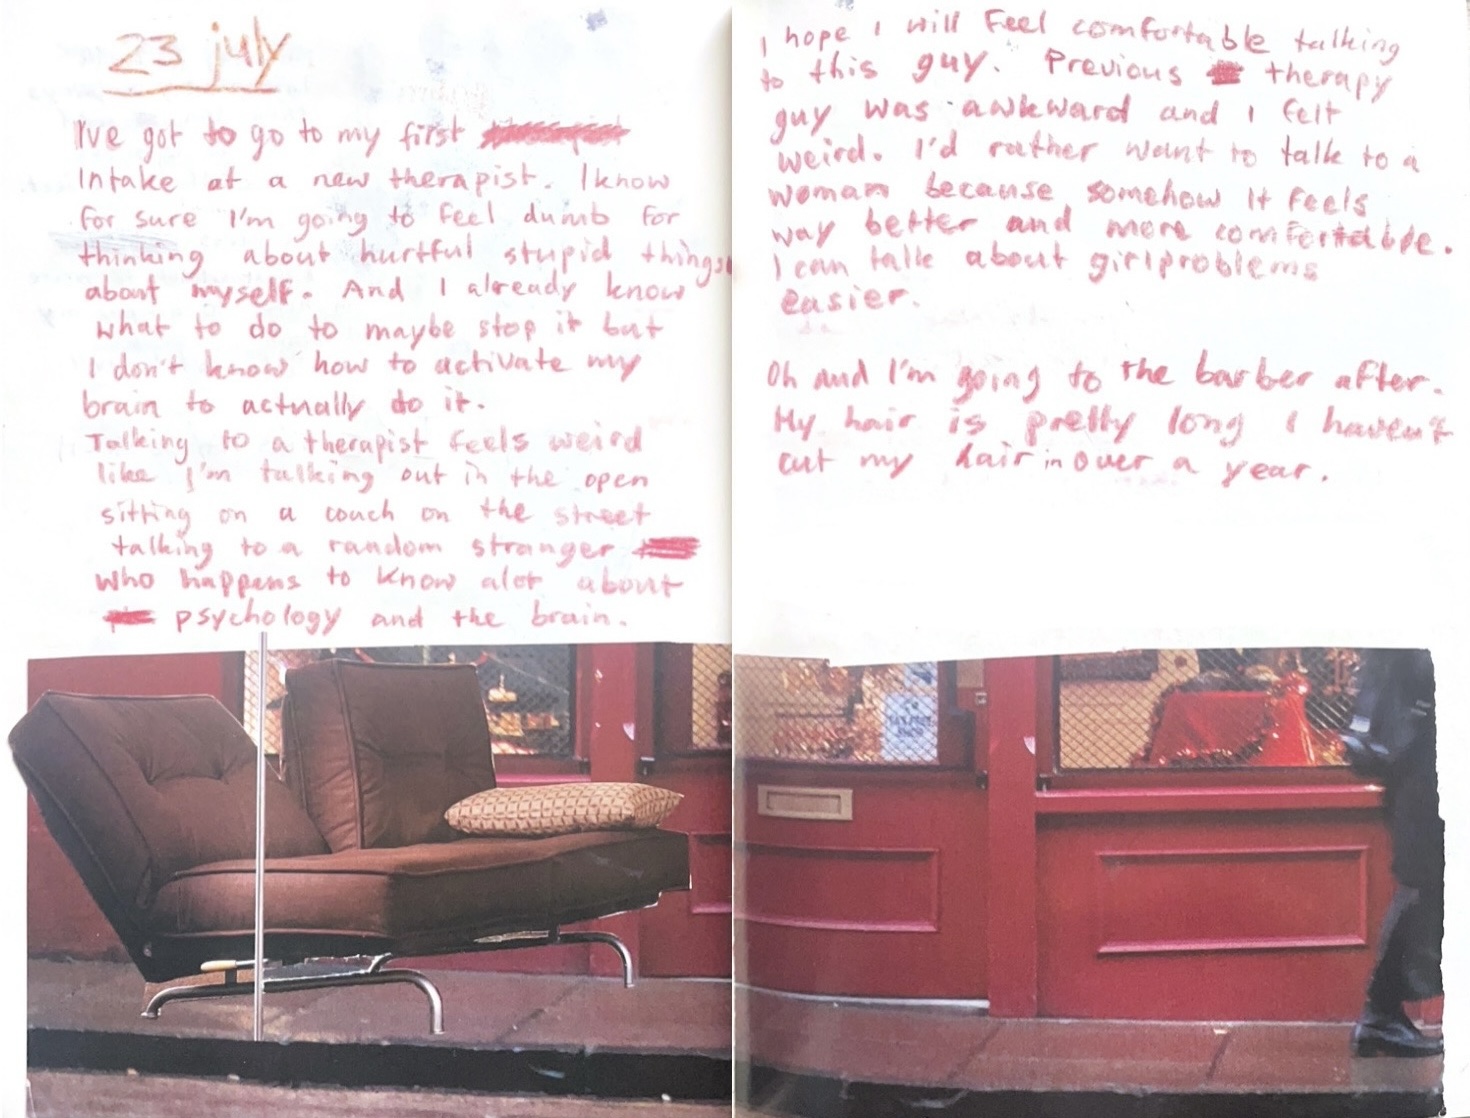 23 july
I've got to go to my first
Intake at a new therapist. I know
for sure I'm going to feel dumb for
thinking about hurtful stupid things
about myself. And I already know
what to do to maybe stop it but
I don't know how to activate my
brain to actually do it.
Talking to a therapist feels weird
like I'm talking out in the open
sitting on a couch on the street
talking to a random stranger
who happens to know alot about
psychology and the brain.
I hope I will feel comfortable talking
to this guy. Previous therapy
guy was awkward and I felt
weird. I'd rather want to talk to a
woman because somehow It feels
way better and more comfortable.
I can talk about girlproblems
easier.
Oh and I'm going to the barber after.
My hair is pretty long I haven't
cut my hair in over a year.